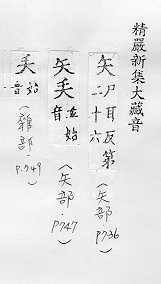 精嚴新集大藏音
矢尸耳反第二十六
(矢部．P736)
矢𡗗音並始
(矢部．P747)
𡗗音始
(雜部．P.749)